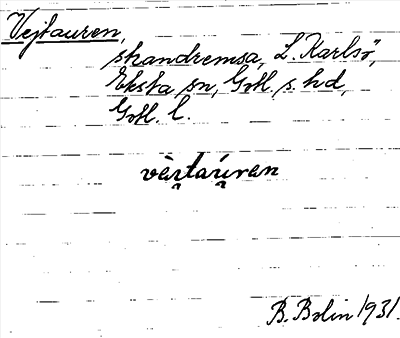 Vejtauren,
strandremsa, L. Karlsö,
Eksta sn, Gotl. s. hd,
Gotl. l.
vèi̯taúren
B. Bolin 1931.